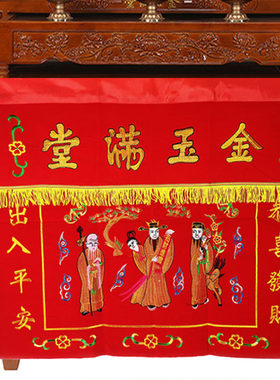 金玉滿堂
恭喜發財
出入平安